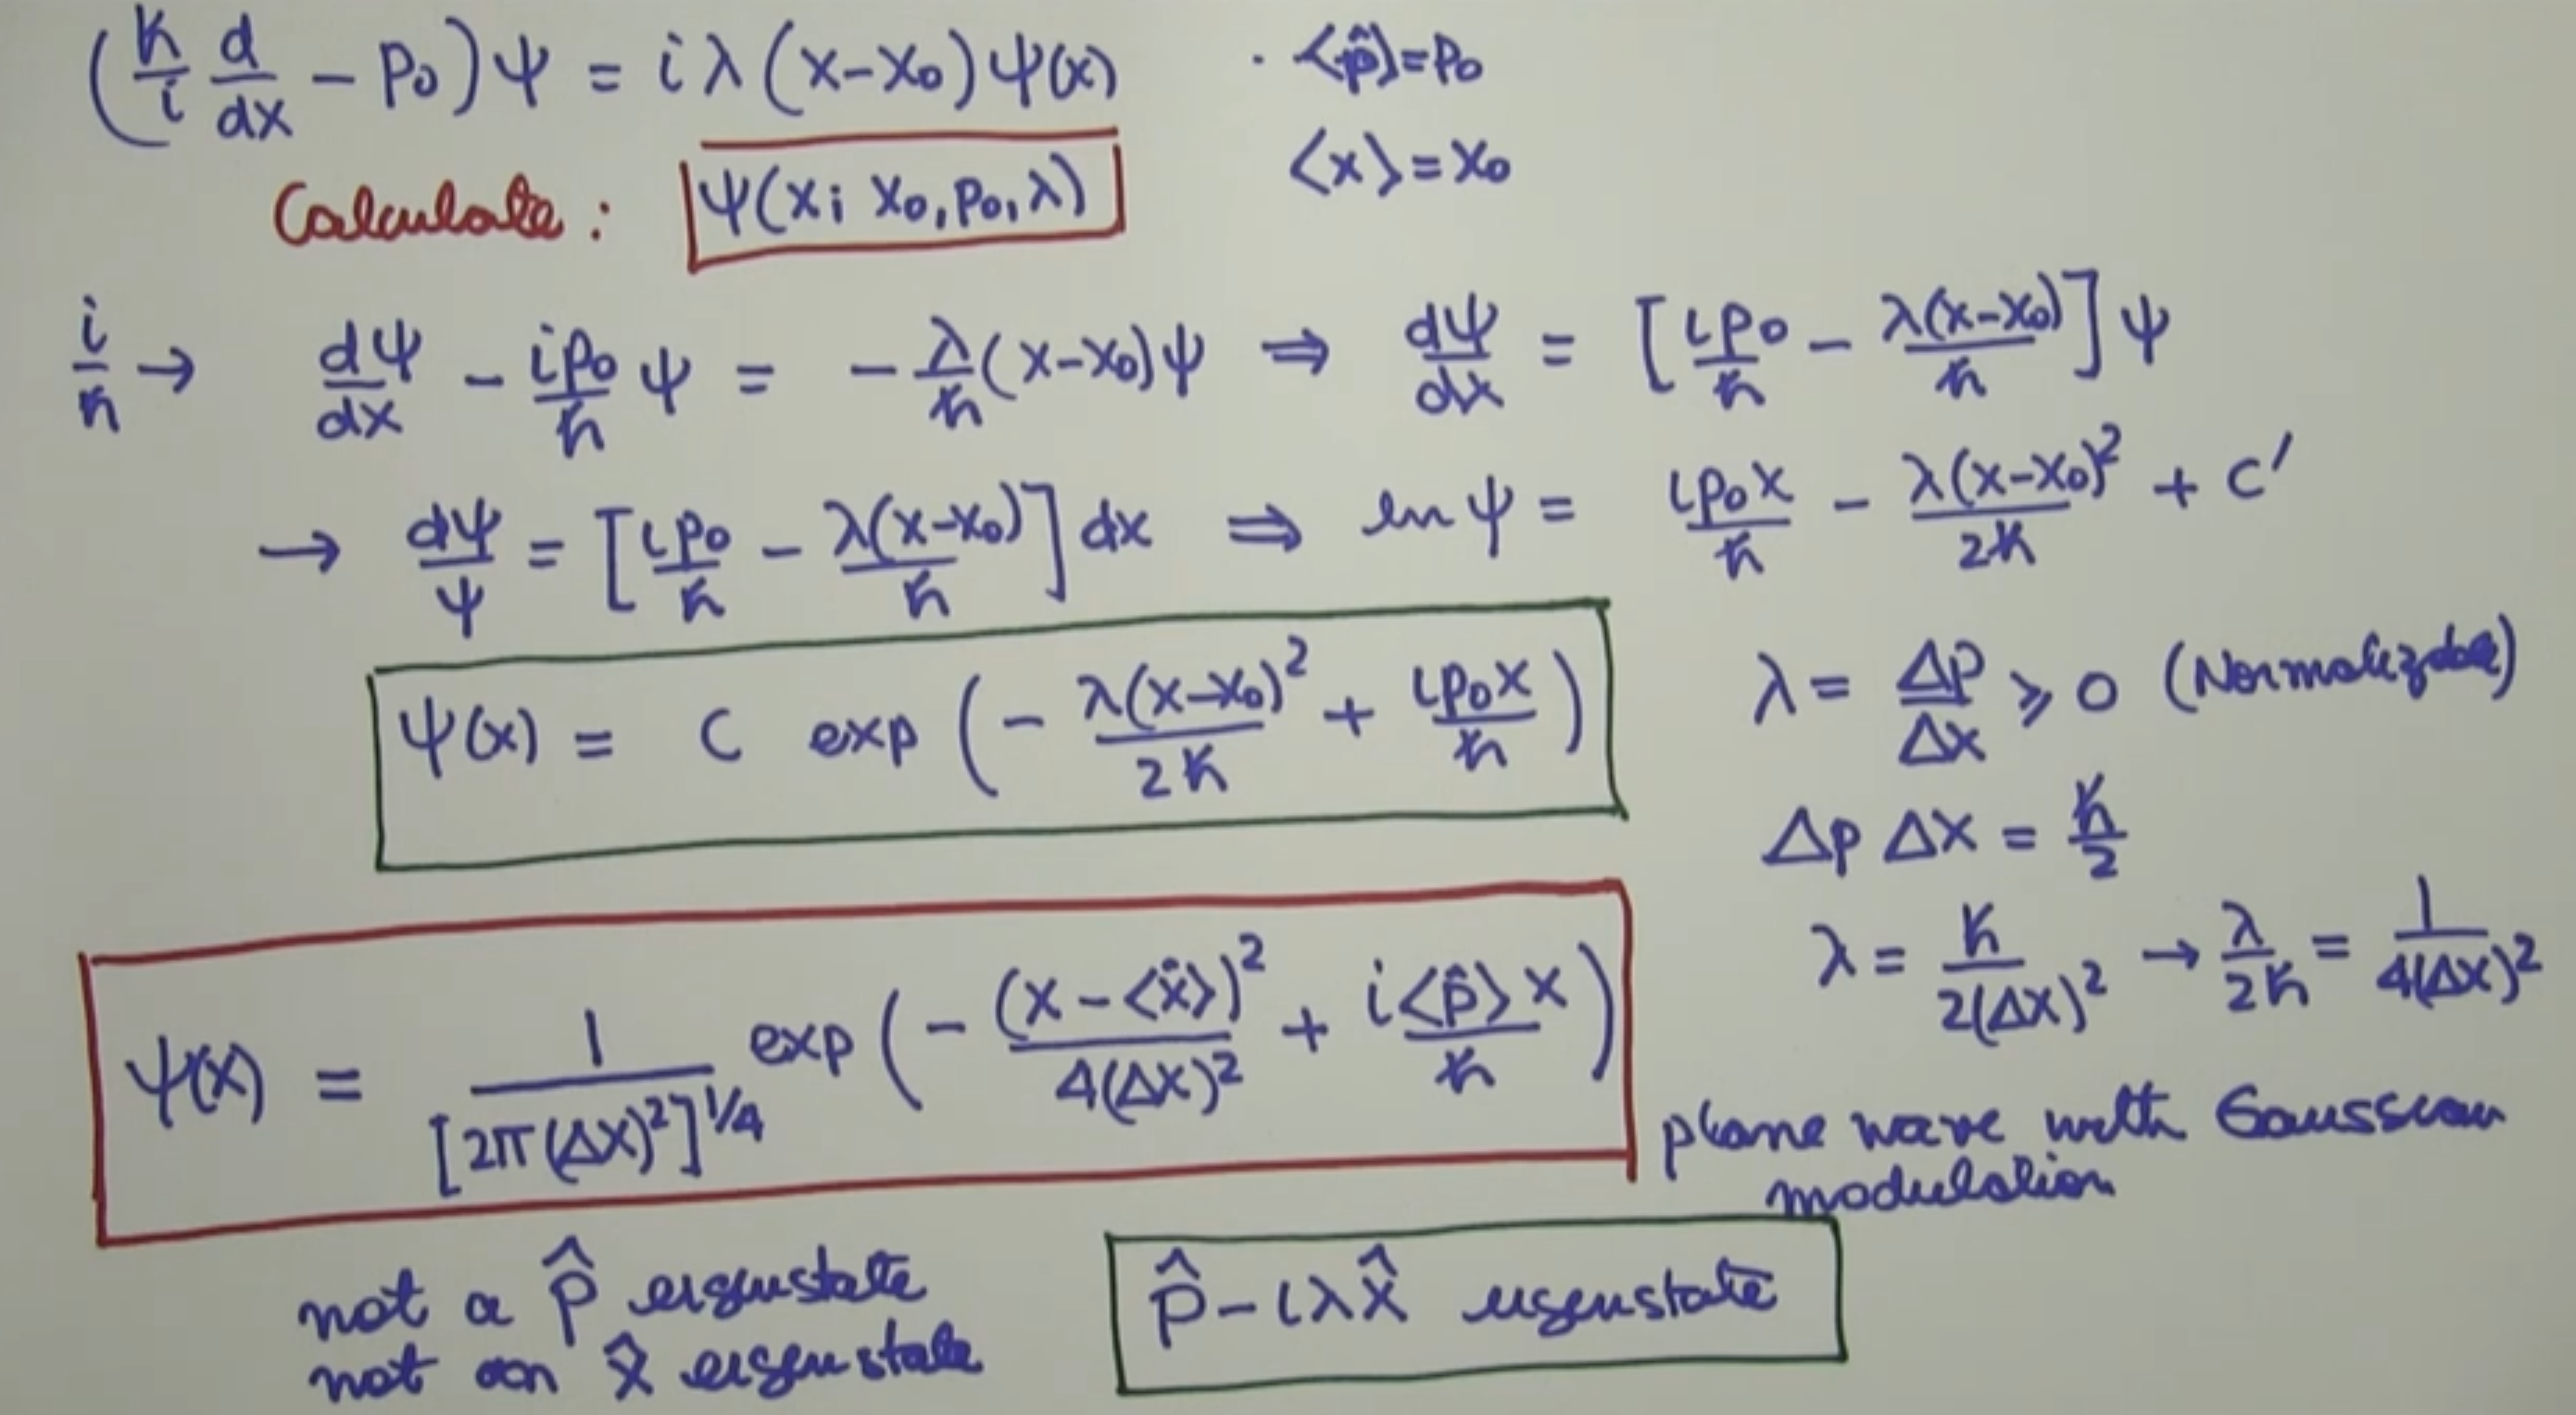 (ħ/i d/dx − p₀)ψ = iλ(x−x₀)ψ(x) · ⟨p̂⟩=p₀
Calculate: ψ(x; x₀, p₀, λ) ⟨x⟩=x₀
i/ħ → dψ/dx − ip₀/ħ ψ = −λ/ħ(x−x₀)ψ ⇒ dψ/dx = [ip₀/ħ − λ(x−x₀)/ħ]ψ
→ dψ/ψ = [ip₀/ħ − λ(x−x₀)/ħ]dx ⇒ ln ψ = ip₀x/ħ − λ(x−x₀)²/2ħ + C′
ψ(x) = C exp(−λ(x−x₀)²/2ħ + ip₀x/ħ)
λ = Δp/Δx ⩾ 0 (Normalizable)
Δp Δx = ħ/2
λ = ħ/2(Δx)² → λ/2ħ = 1/4(Δx)²
ψ(x) = 1/[2π(Δx)²]^1/4 exp(−(x−⟨x̂⟩)²/4(Δx)² + i⟨p̂⟩x/ħ)
plane wave with Gaussian
modulation
not a p̂ eigenstate
not an x̂ eigenstate
p̂−iλx̂ eigenstate